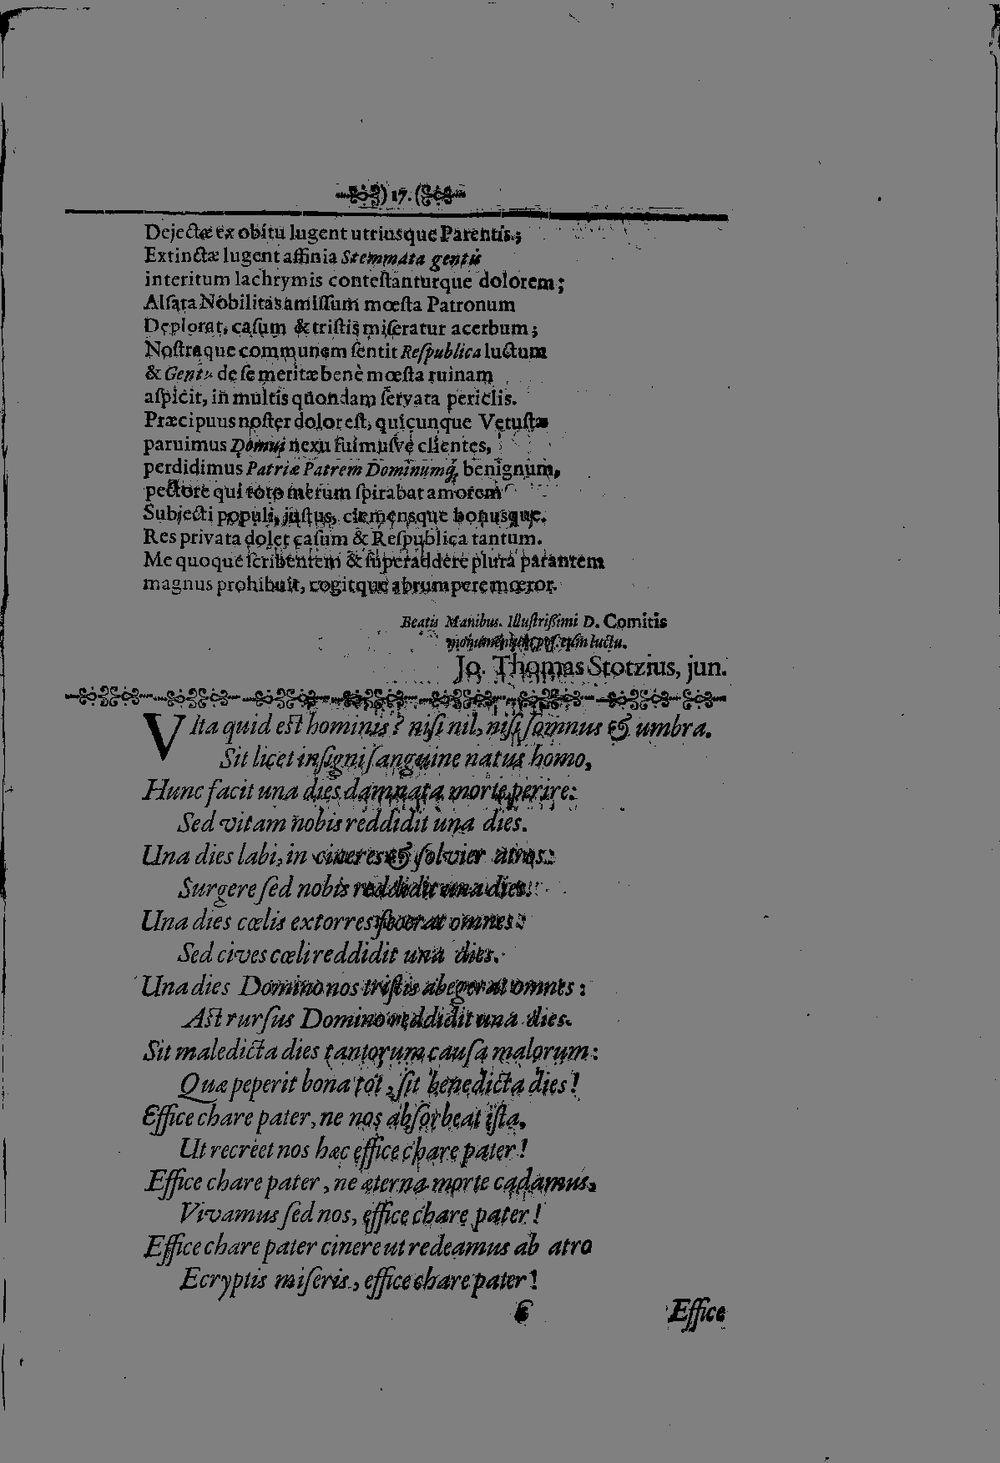 ) 17. (
Dejectæ ex obitu lugent utriusque Parentis;
Extinctæ lugent affinia Stemmata gentis
interitum lachrymis conteſtanturque dolorem;
Alſata Nobilitas amiſſum mœſta Patronum
Deplorat, caſum & triſtis miſeratur acerbum;
Noſtraque communem ſentit Reſpublica luctum
& Gentis de ſe meritæ benè mœſta ruinam
aſpicit, in multis quondam ſervata periclis.
Præcipuus noſter dolor eſt, quicunque Vetuſtæ
paruimus Domui nexu fuimuſve clientes,
perdidimus Patriæ Patrem Dominumq́, benignum,
pectore qui toto merum ſpirabat amorem
Subjecti populi, juſtus, clemensque bonusque.
Res privata dolet caſum & Reſpublica tantum.
Me quoque ſcribentem & ſuperaddere plura parantem
magnus prohibuit, cogitque abrumpere mœror.
Beatis Manibus. Illuſtriſſimi D. Comitis
luctu.
Jo. Thomas Stotzius, jun.
VIta quid est hominis? niſi nil, niſi ſomnus & umbra.
Sit licet inſigni ſanguine natus homo,
Hunc facit una dies damnata morte perire:
Sed vitam nobis reddidit una dies.
Una dies labi, in cineres & ſolvier atros:
Surgere ſed nobis reddidit una dies.
Una dies cœlis extorres fecerat omnes:
Sed cives cœli reddidit una dies.
Una dies Domino nos triſtis abegerat omnes:
Ast rurſus Domino reddidit una dies.
Sit maledicta dies tantorum cauſa malorum:
Quæ peperit bona tot, ſit benedicta dies!
Effice chare pater, ne nos abſorbeat iſta,
Ut recreet nos hæc effice chare pater!
Effice chare pater, ne æterna morte cadamus,
Vivamus ſed nos, effice chare pater!
Effice chare pater cinere ut redeamus ab atro
E cryptis miſeris, effice chare pater!
Effice